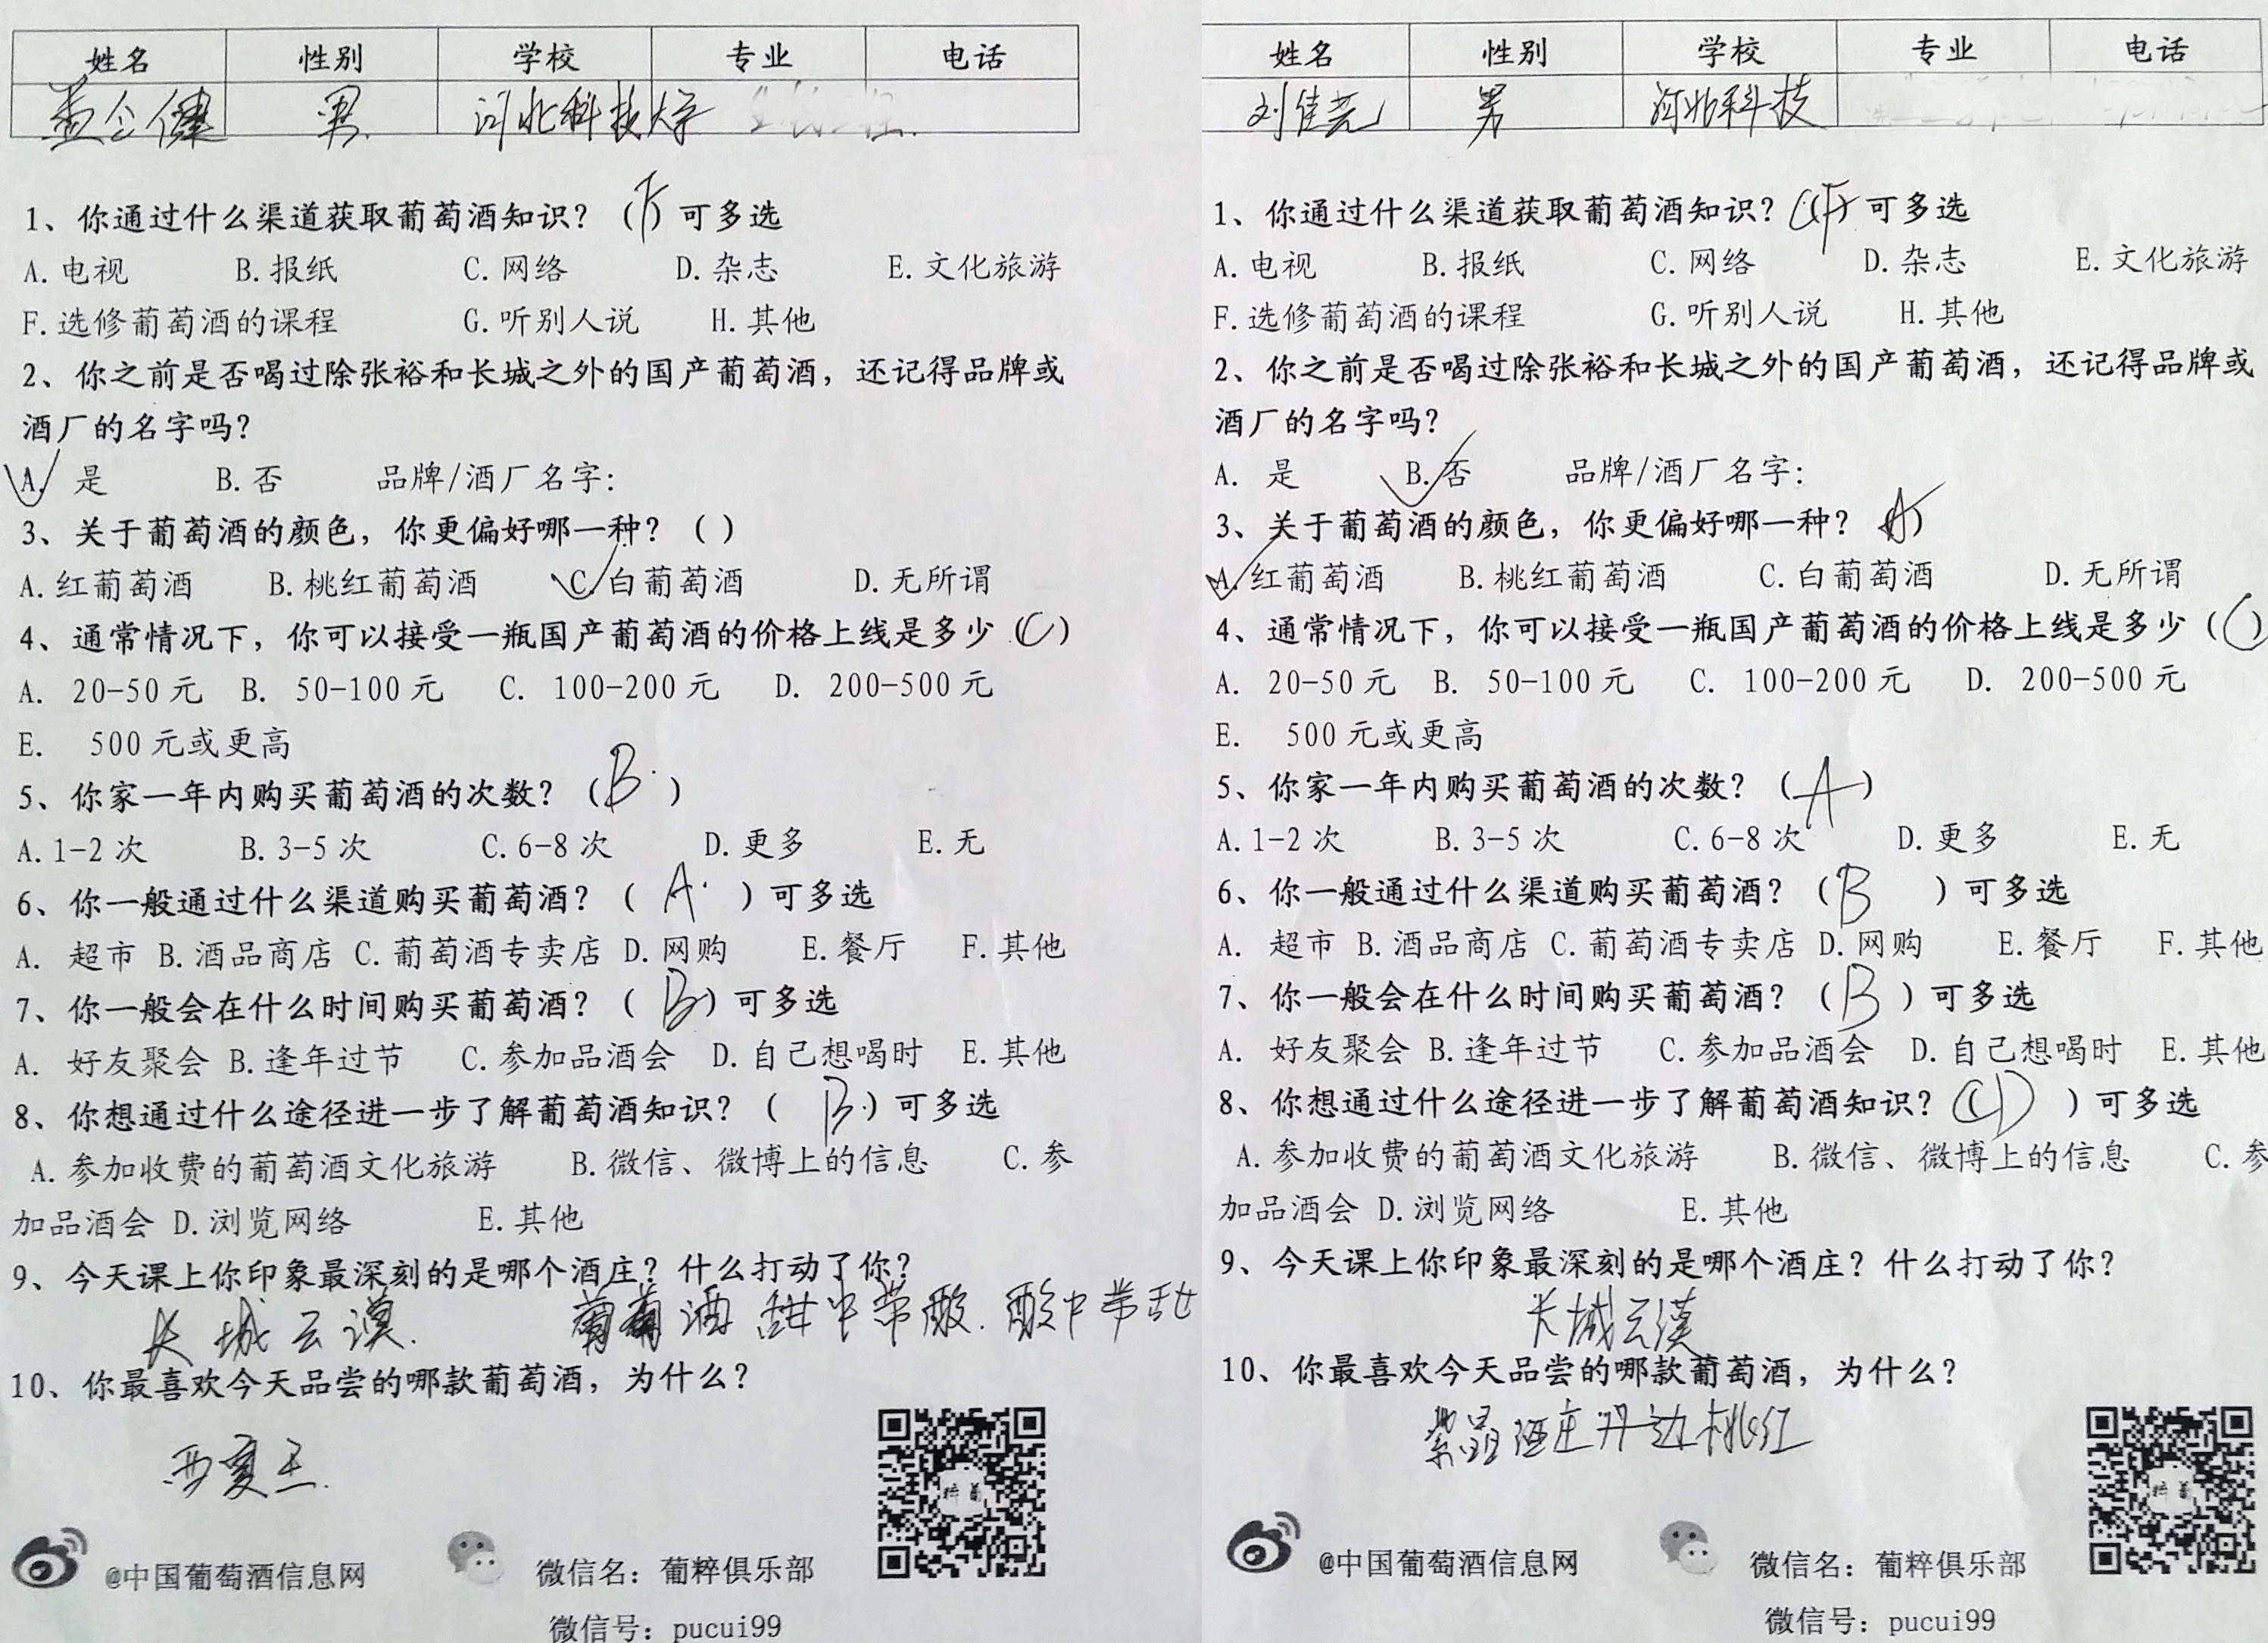 姓名 性别 学校 专业 电话
男 河北科技大学
1、你通过什么渠道获取葡萄酒知识？（F）可多选
A.电视 B.报纸 C.网络 D.杂志 E.文化旅游
F.选修葡萄酒的课程 G.听别人说 H.其他
2、你之前是否喝过除张裕和长城之外的国产葡萄酒，还记得品牌或
酒厂的名字吗？
A. 是 B.否 品牌/酒厂名字：
3、关于葡萄酒的颜色，你更偏好哪一种？（）
A.红葡萄酒 B.桃红葡萄酒 C.白葡萄酒 D.无所谓
4、通常情况下，你可以接受一瓶国产葡萄酒的价格上线是多少（C）
A. 20-50元 B. 50-100元 C. 100-200元 D. 200-500元
E. 500元或更高
5、你家一年内购买葡萄酒的次数？（B）
A.1-2次 B.3-5次 C.6-8次 D.更多 E.无
6、你一般通过什么渠道购买葡萄酒？（A）可多选
A. 超市 B.酒品商店 C.葡萄酒专卖店 D.网购 E.餐厅 F.其他
7、你一般会在什么时间购买葡萄酒？（B）可多选
A. 好友聚会 B.逢年过节 C.参加品酒会 D.自己想喝时 E.其他
8、你想通过什么途径进一步了解葡萄酒知识？（B）可多选
A.参加收费的葡萄酒文化旅游 B.微信、微博上的信息 C.参
加品酒会 D.浏览网络 E.其他
9、今天课上你印象最深刻的是哪个酒庄？什么打动了你？
长城云漠. 葡萄酒甜中带酸.酸中带甜
10、你最喜欢今天品尝的哪款葡萄酒，为什么？
西夏王.
@中国葡萄酒信息网 微信名：葡粹俱乐部
微信号：pucui99
姓名 性别 学校 专业 电话
刘佳亮 男 河北科技
1、你通过什么渠道获取葡萄酒知识？（CF）可多选
A.电视 B.报纸 C.网络 D.杂志 E.文化旅游
F.选修葡萄酒的课程 G.听别人说 H.其他
2、你之前是否喝过除张裕和长城之外的国产葡萄酒，还记得品牌或
酒厂的名字吗？
A. 是 B.否 品牌/酒厂名字：
3、关于葡萄酒的颜色，你更偏好哪一种？（A）
A.红葡萄酒 B.桃红葡萄酒 C.白葡萄酒 D.无所谓
4、通常情况下，你可以接受一瓶国产葡萄酒的价格上线是多少（C）
A. 20-50元 B. 50-100元 C. 100-200元 D. 200-500元
E. 500元或更高
5、你家一年内购买葡萄酒的次数？（A）
A.1-2次 B.3-5次 C.6-8次 D.更多 E.无
6、你一般通过什么渠道购买葡萄酒？（B）可多选
A. 超市 B.酒品商店 C.葡萄酒专卖店 D.网购 E.餐厅 F.其他
7、你一般会在什么时间购买葡萄酒？（B）可多选
A. 好友聚会 B.逢年过节 C.参加品酒会 D.自己想喝时 E.其他
8、你想通过什么途径进一步了解葡萄酒知识？（CD）可多选
A.参加收费的葡萄酒文化旅游 B.微信、微博上的信息 C.参
加品酒会 D.浏览网络 E.其他
9、今天课上你印象最深刻的是哪个酒庄？什么打动了你？
长城云漠
10、你最喜欢今天品尝的哪款葡萄酒，为什么？
紫晶酒庄丹边桃红
@中国葡萄酒信息网 微信名：葡粹俱乐部
微信号：pucui99